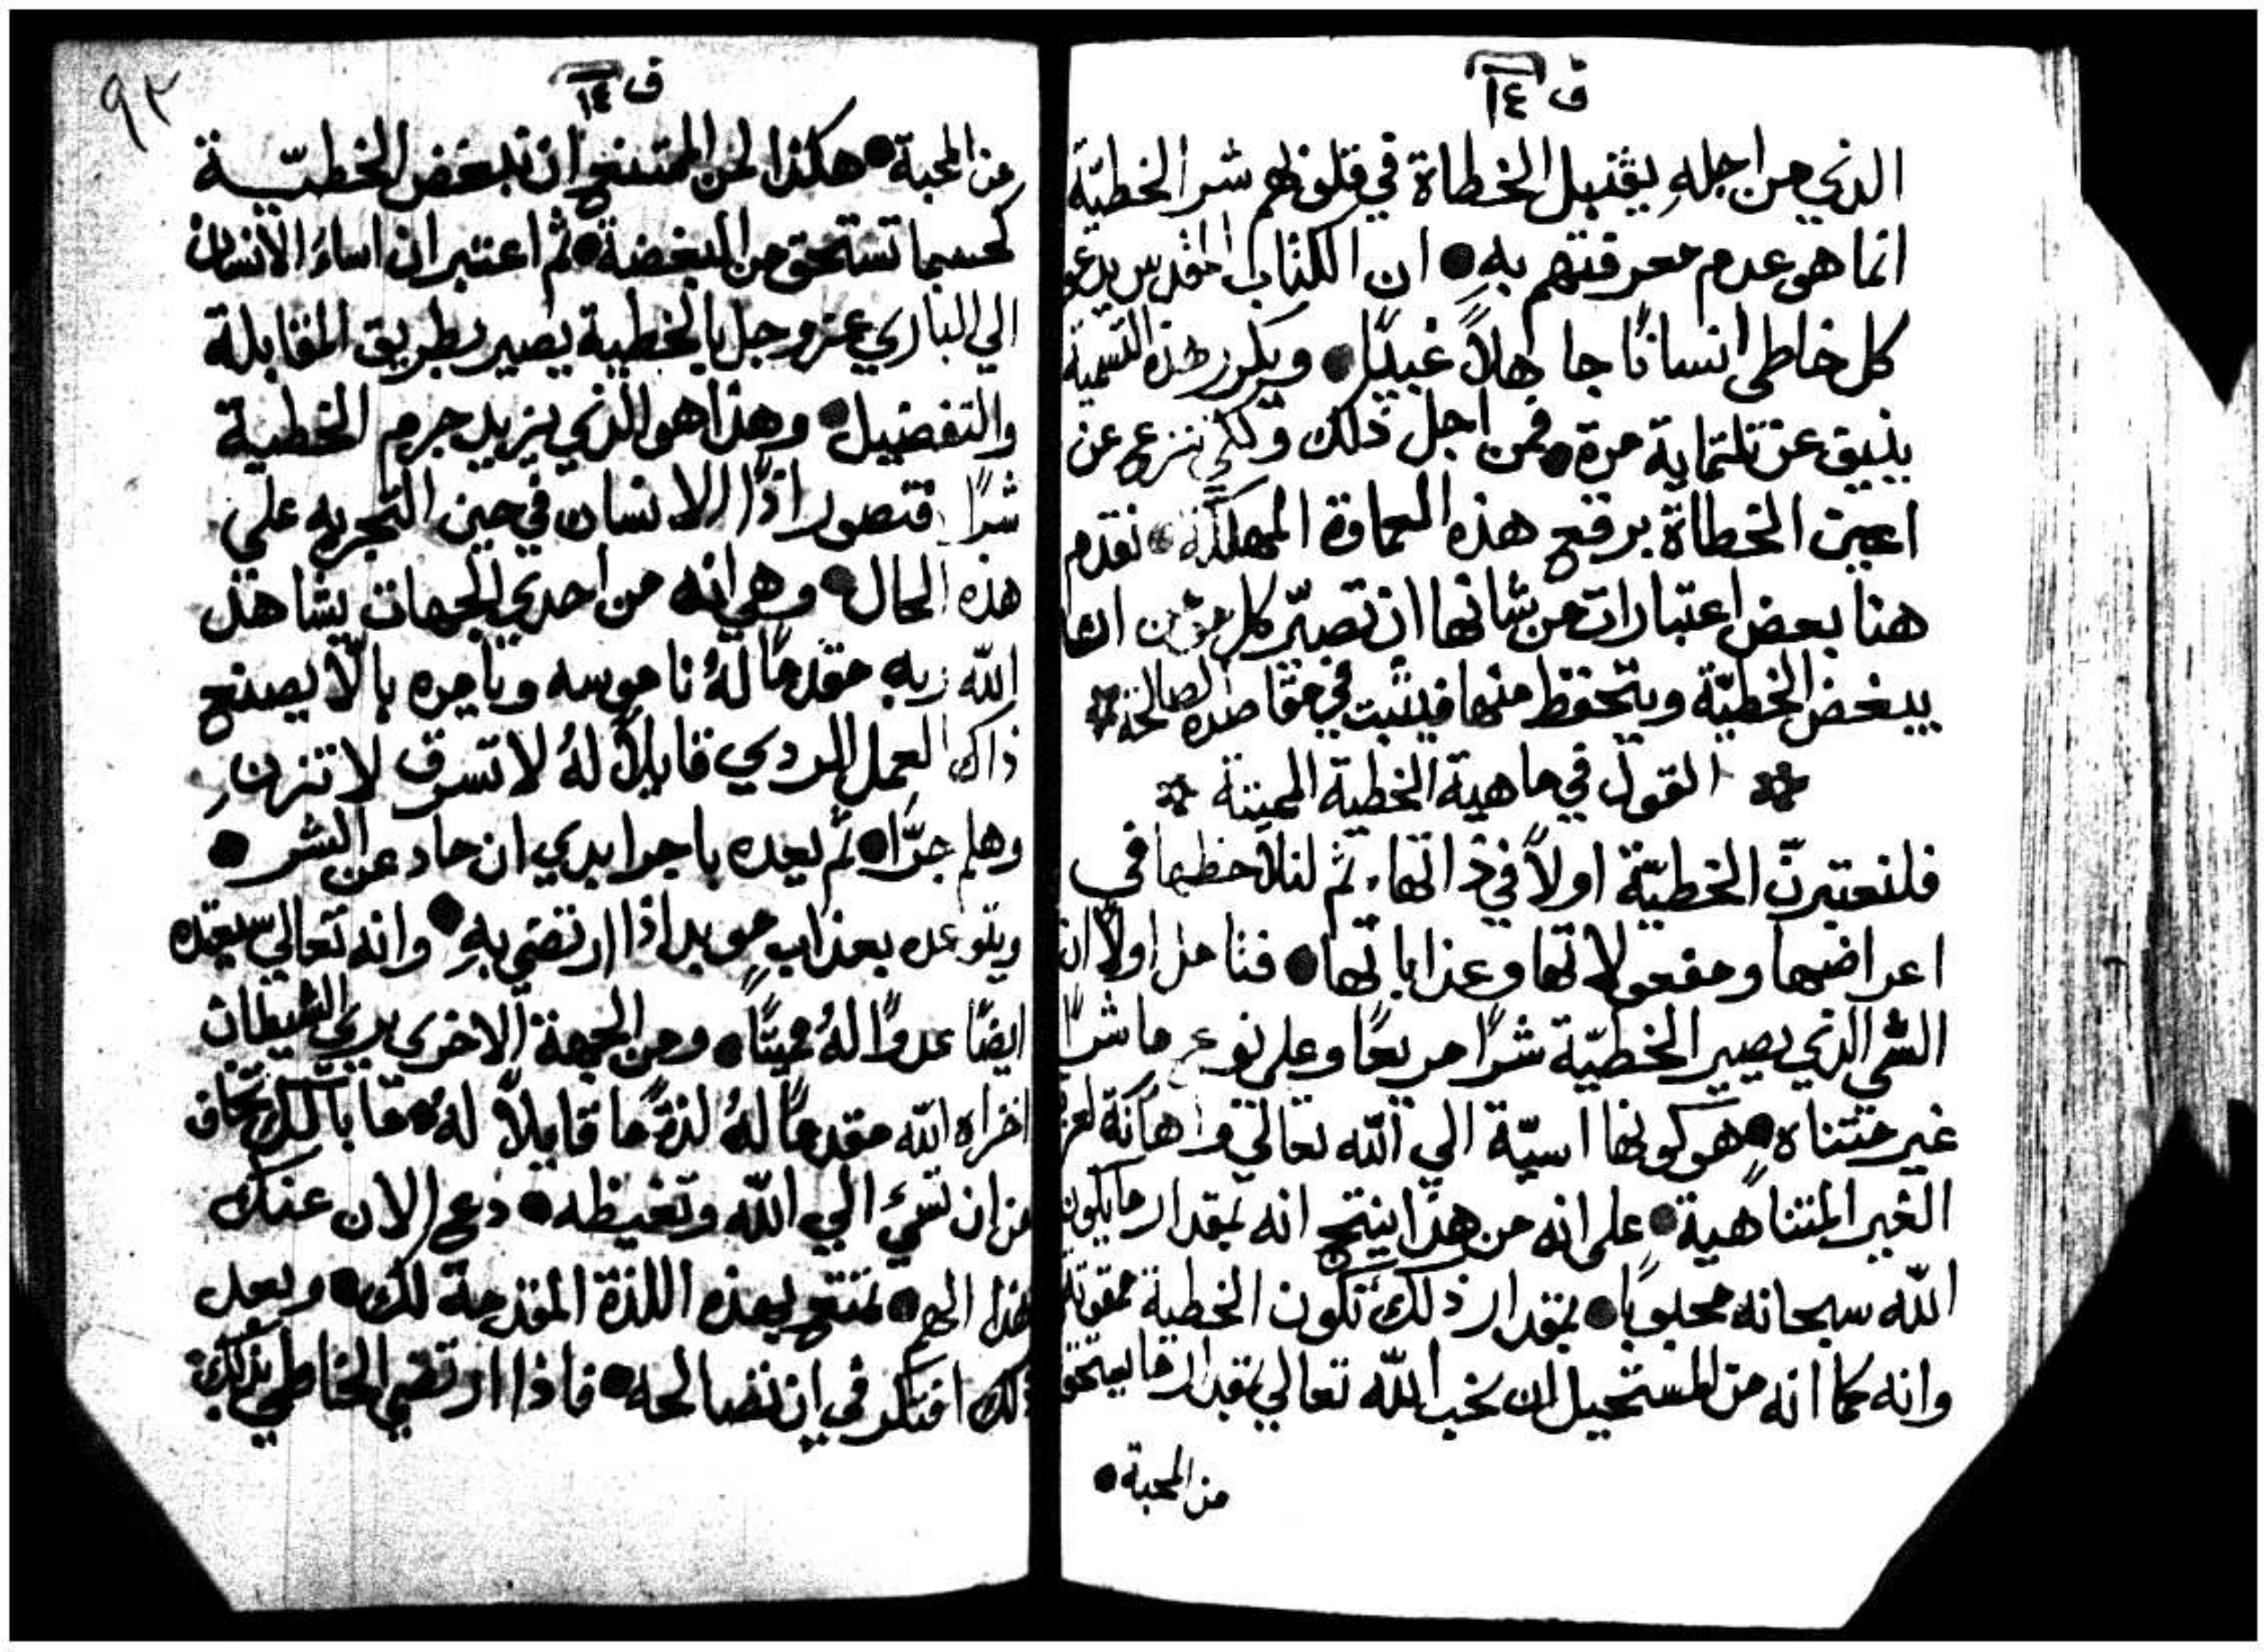 ف ١٤
الذي من اجلهِ يقتبل الخطاة في قلوبهم شر الخطيّة
انما هو عدم معرفتهم بهِ ● ان الكتاب المقدس يدعو
كل خاطي انسانًا جاهلاً غبيًا ● ويكرر هذه التسمية
بنيق عن تلتماية مرة ● فمن اجل ذلك ولكي ننزع عن
اعين الخطاة برقع هذه العماوة المهلكة ● نقدم
هنا بعض اعتبارات من شانها ان تصيّر كل مومن
يبغض الخطيّة ويتحفظ منها فيثبت في مقاصده الصالحة
القول في ماهية الخطية المميتة
فلنعتبرنّ الخطيّة اولاً في ذاتها، ثم لنلاحظها في
اعراضها ومفعولاتها وعذاباتها ● فنتامل اولاً ان
الشي الذي يصير الخطيّة شرًا مريعًا وعلى نوعٍ ما شرًا
غير متناهٍ ● هو كونها اسيّة الي الله تعالي واهانة لعز
الغير المتناهية ● على انه من هذا ينتج انه بمقدار ما يكون
الله سبحانه محبوبًا ● بمقدار ذلك تكون الخطية ممقوتة
وانه كما انه من المستحيل ان نحب الله تعالي بمقدار ما يستحق
من المحبة ●
٩٢
ف ١٤
من المحبة ● هكذا لمن الممتنع ان تبغض الخطيّة
كحسبما تستحق من البغضة ● ثم اعتبر ان اساءَ الانسان
الي الباري عز وجل بالخطية يصير بطريق المقابلة
والتفضيل ● وهذا هو الذي يزيد جرم الخطية
شرًا فتصور اذًا الانسان في حين التجربه علي
هذه الحال ● وهي انه من احدي الجهات يشاهد
الله ربه مقدمًا لهُ ناموسه ويامره بالّا يصنع
ذاك العمل الردي قايلاً لهُ لا تسرق لا تزنِ
وهلم جرًّا ● ثم يعده باجر ابدي ان حاد عن الشر ●
ويتوعده بعذابٍ موبد اذا ارتضي بهِ ● وانه تعالي سيعده
ايضًا عدوًا لهُ مميتًا ● ومن الجهة الاخري يري الشيطان
اخزاه الله مقدمًا لهُ لذةً ما قايلاً لهُ ● ما بالك تخاف
من ان تسيء الي الله وتغيظه ● دع الان عنك
هذا الهم ● تمتع بهذه اللذة المقدمة لك ● وبعد
ذلك افتكر في ان تصالحه ● فاذا ارتضي الخاطي بذلك